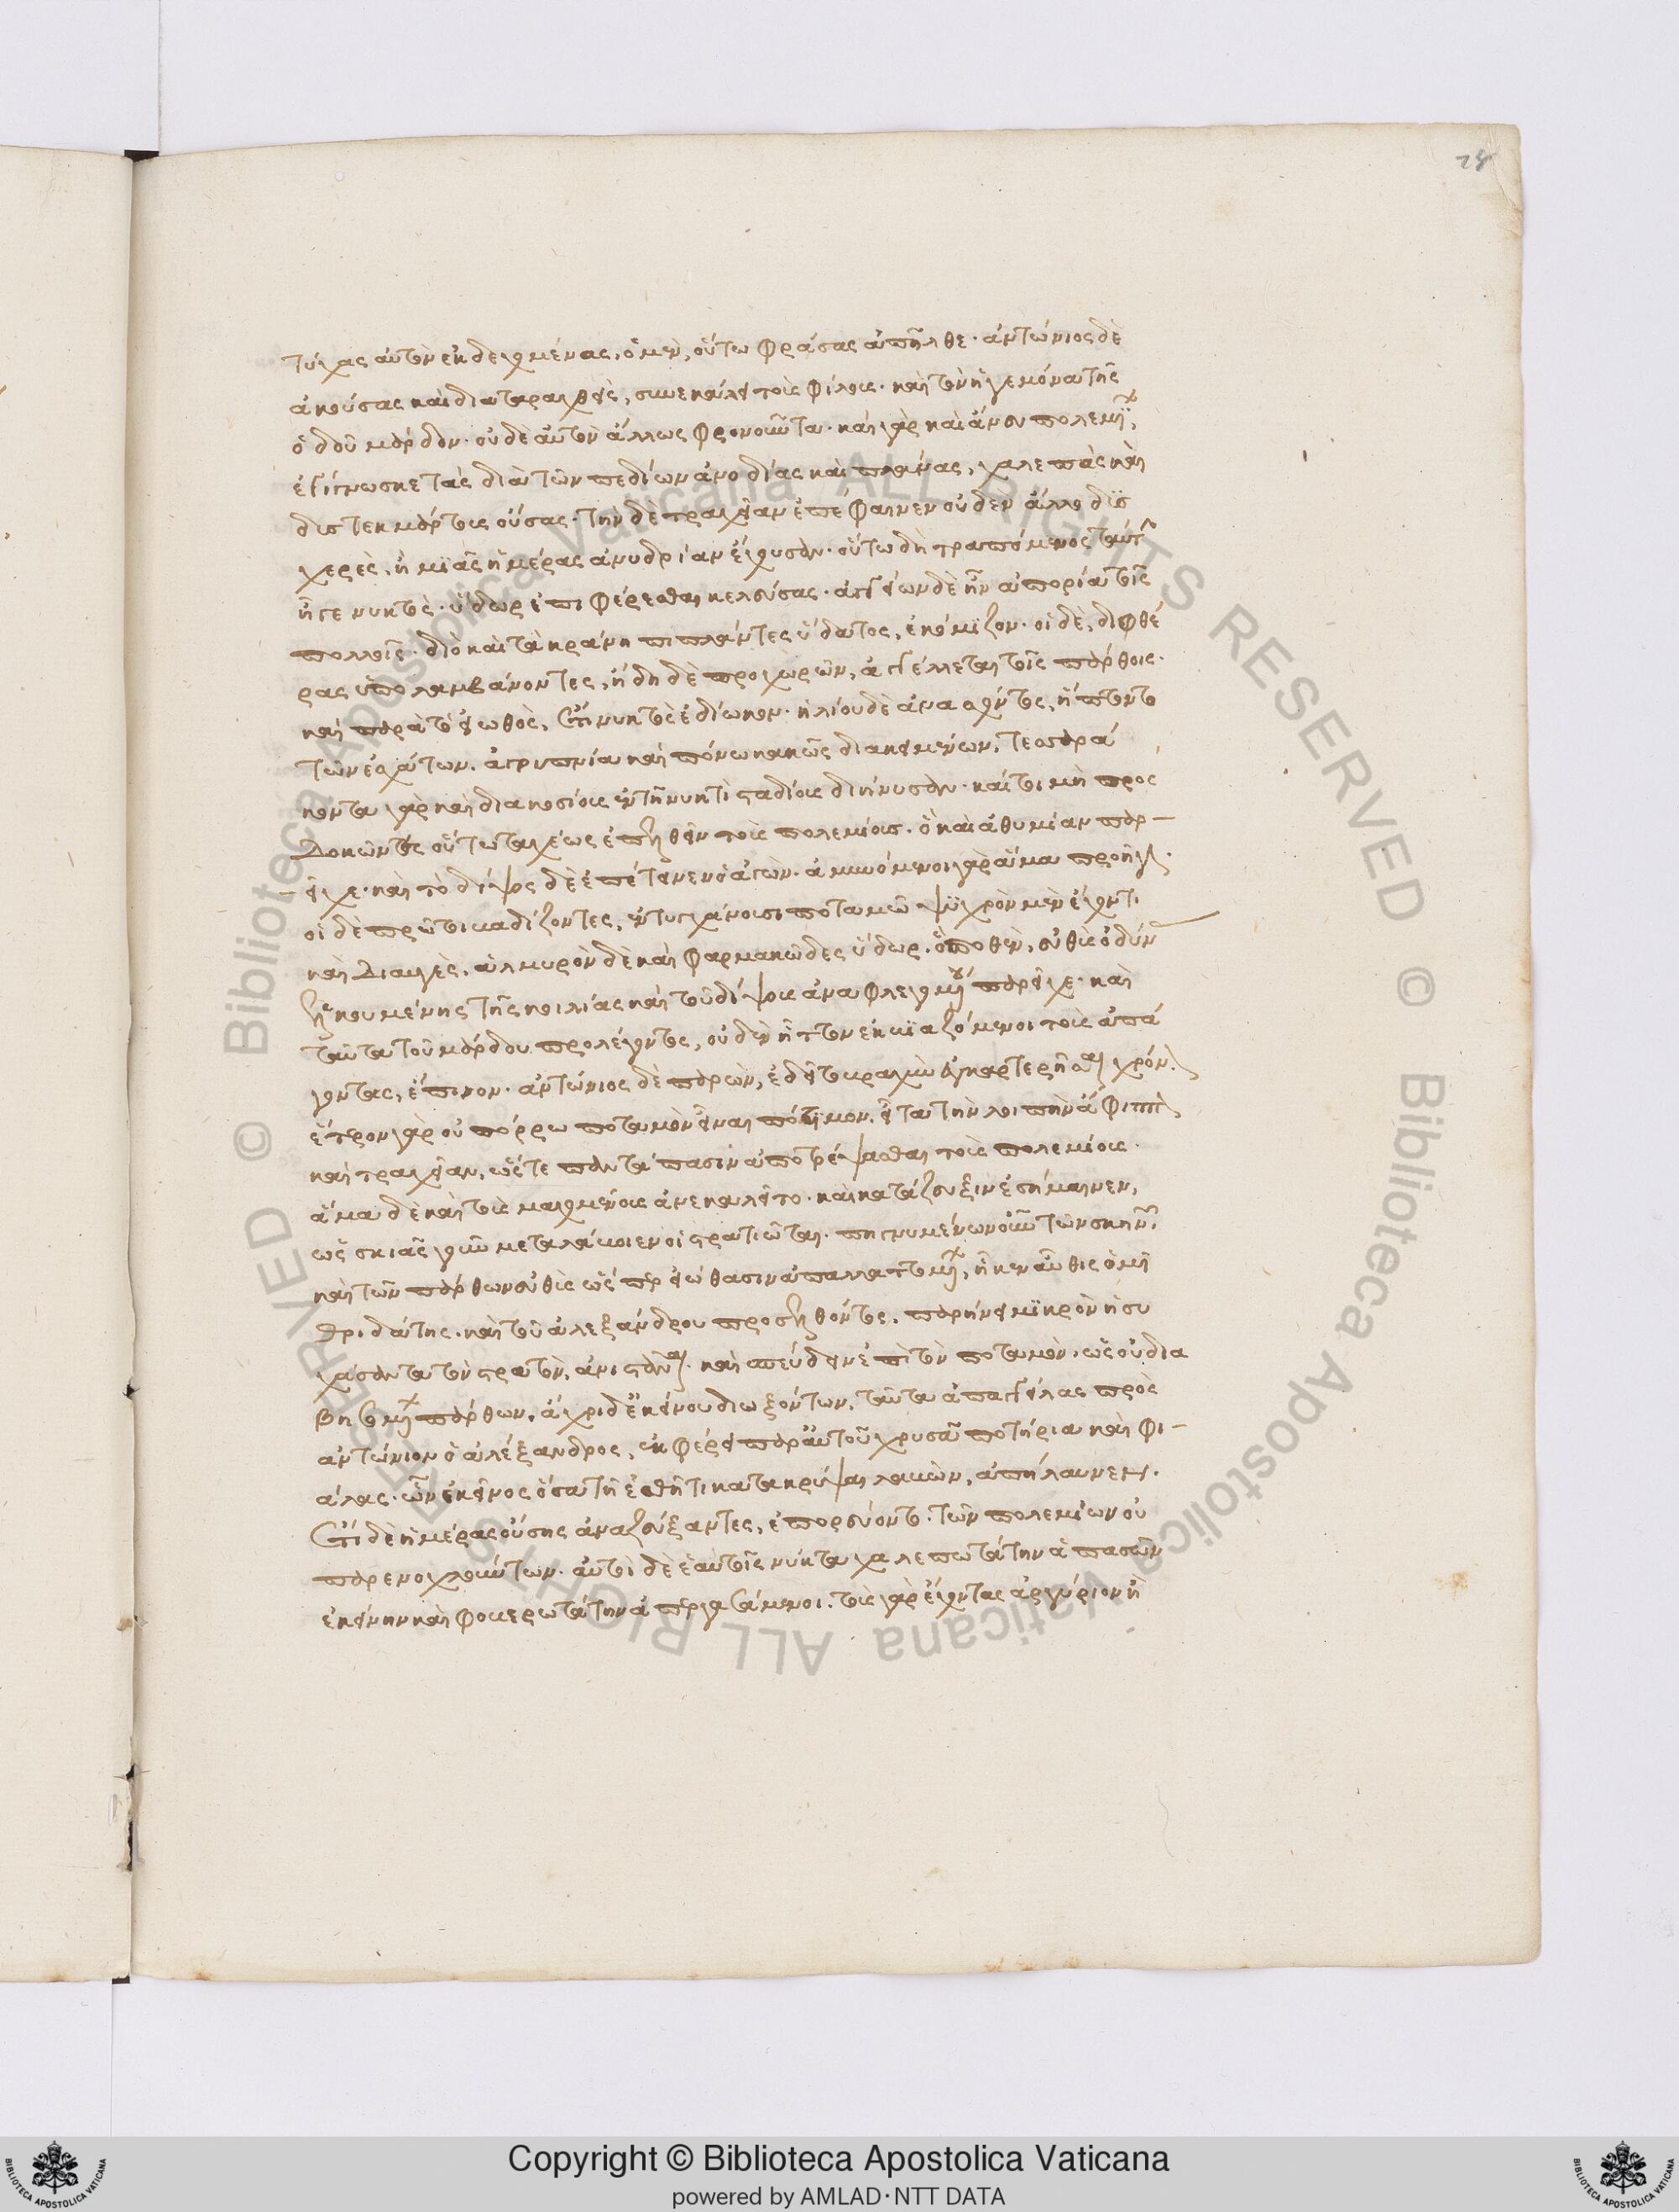 τύχας αὐτὸν ἐκδεχομένας. ὁ μὲν, οὕτω φράσας ἀπῆλθε. ἀντώνιος δὲ
ἀκούσας καὶ διαταραχθεὶς, συνεκάλει τοὺς φίλους. καὶ τὸν ἡγεμόνα τῆς
ὁδοῦ μάρδον. οὐδὲ αὐτὸν ἄλλως φρονοῦντα. καὶ γὰρ καὶ ἄνευ πολεμίων,
ἐγίγνωσκε τὰς διὰ τῶν πεδίων ἀνοδίας καὶ πλάνας, χαλεπὰς καὶ
δυστεκμάρτους οὔσας. τὴν δὲ τραχεῖαν ἐπέφαινεν οὐδὲν ἄλλο δυσ
χερὲς, ἢ μιᾶς ἡμέρας ἀνυδρίαν ἔχουσαν. οὕτω δὴ τραπόμενος ταύτην
ἦγε νυκτὸς. ὕδωρ ἐπιφέρεσθαι κελεύσας. ἀγγείων δὲ ἦν ἀπορία τοῖς
πολλοῖς. διὸ καὶ τὰ κράνη πιπλάντες ὕδατος, ἐκόμιζον. οἱ δὲ, διφθέ
ρας ὑπολαμβάνοντες, ἤδη δὲ προχωρῶν, ἀγγέλλεται τοῖς πάρθοις.
καὶ παρὰ τὸ εἰωθὸς, ἔτι νυκτὸς ἐδίωκον. ἡλίου δὲ ἀνασχόντος, ἥπτοντο
τῶν ἐσχάτων. ἀγρυπνία καὶ πόνω κακῶς διακειμένων. τεσσαρά
κοντα γὰρ καὶ διακοσίους ἐν τῇ νυκτὶ σταδίους διήνυσαν. καί τοι μὴ προσ
δοκῶντες οὕτω ταχέως ἐπελθεῖν τοὺς πολεμίους. ὃ καὶ ἀθυμίαν παρ–
εῖχε. καὶ τὸ δίψος δὲ ἐπέτεινεν ὁ ἀγών. ἀμυνόμενοι γὰρ ἅμα προῆγον.
οἱ δὲ πρῶτοι βαδίζοντες, ἐντυγχάνουσι ποταμῶ ψυχρὸν μὲν ἔχοντι
καὶ διαυγὲς. ἁλμυρὸν δὲ καὶ φαρμακῶδες ὕδωρ. ὃ ποθὲν, εὐθὺς ὀδύν
ἑλκουμένης τῆς κοιλίας καὶ τοῦ δίψους ἀναφλεγομένου παρεῖχε. καὶ
ταῦτα τοῦ μάρδου προλέγοντος, οὐδὲν ἧττον ἐκβιαζόμενοι τοὺς ἀπά
γοντας, ἔπινον. ἀντώνιος δὲ παρὼν, ἐδεῖτο βραχὺν ἐγκαρτερῆσαι χρόνον.
ἕτερον γὰρ οὐ πόρρω ποταμὸν εἶναι πότιμον. εἶτα τὴν λοιπὴν ἄφιππον
καὶ τραχεῖαν. ὥστε παντάπασιν ἀποτρέψασθαι τοὺς πολεμίους.
ἅμα δὲ καὶ τοὺς μαχομένους ἀνεκαλεῖτο. καὶ κατάζευξιν ἐσήμαινεν,
ὡς σκιᾶς γοῦν μεταλάβοιεν οἱ στρατιῶται. πηγνυμένων οὖν τῶν σκηνῶν,
καὶ τῶν πάρθων εὐθὺς ὥσπερ εἰώθασιν ἀπαλλαττομένων, ἧκεν αὖθις ὁ μι
θριδάτης. καὶ τοῦ ἀλεξάνδρου προσελθόντος, παρήνει μικρὸν ἡσυ
χάσαντα τὸν στρατὸν, ἀνιστάναι. καὶ σπεύδειν ἐπὶ τὸν ποταμὸν. ὡς οὐ δια
βησομένων πάρθων. ἄχρι δὲ ἐκείνου διωξόντων. ταῦτα ἀπαγγείλας πρὸς
ἀντώνιον ὁ ἀλέξανδρος, ἐκφέρει παρ' αὐτοῦ χρυσᾶ ποτήρια καὶ φι–
άλας. ὧν ἐκεῖνος ὅσα τῇ ἐσθῆτι κατακρύψαι λαβὼν, ἀπήλαυνεν.
ἔτι δὲ ἡμέρας οὔσης ἀναζεύξαντες, ἐπορεύοντο. τῶν πολεμίων οὐ
παρενοχλούντων. αὐτοὶ δὲ ἑαυτοῖς νύκτα χαλεπωτάτην ἁπασῶν
ἐκείνην καὶ φοβερωτάτην ἀπεργασάμενοι. τοὺς γὰρ ἔχοντας ἀργύριον ἢ
Copyright © Biblioteca Apostolica Vaticana
powered by AMLAD·NTT DATA